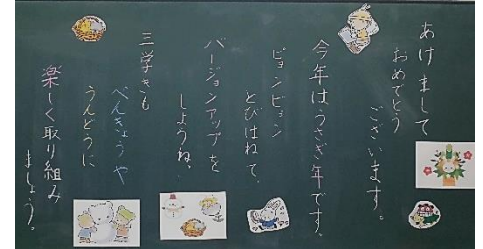 あけまして
おめでとう
ございます。
今年はうさぎ年です。
ピョンピョン
とびはねて、
バージョンアップを
しようね。
三学きも
べんきょうや
うんどうに
楽しく取り組み
ましょう。